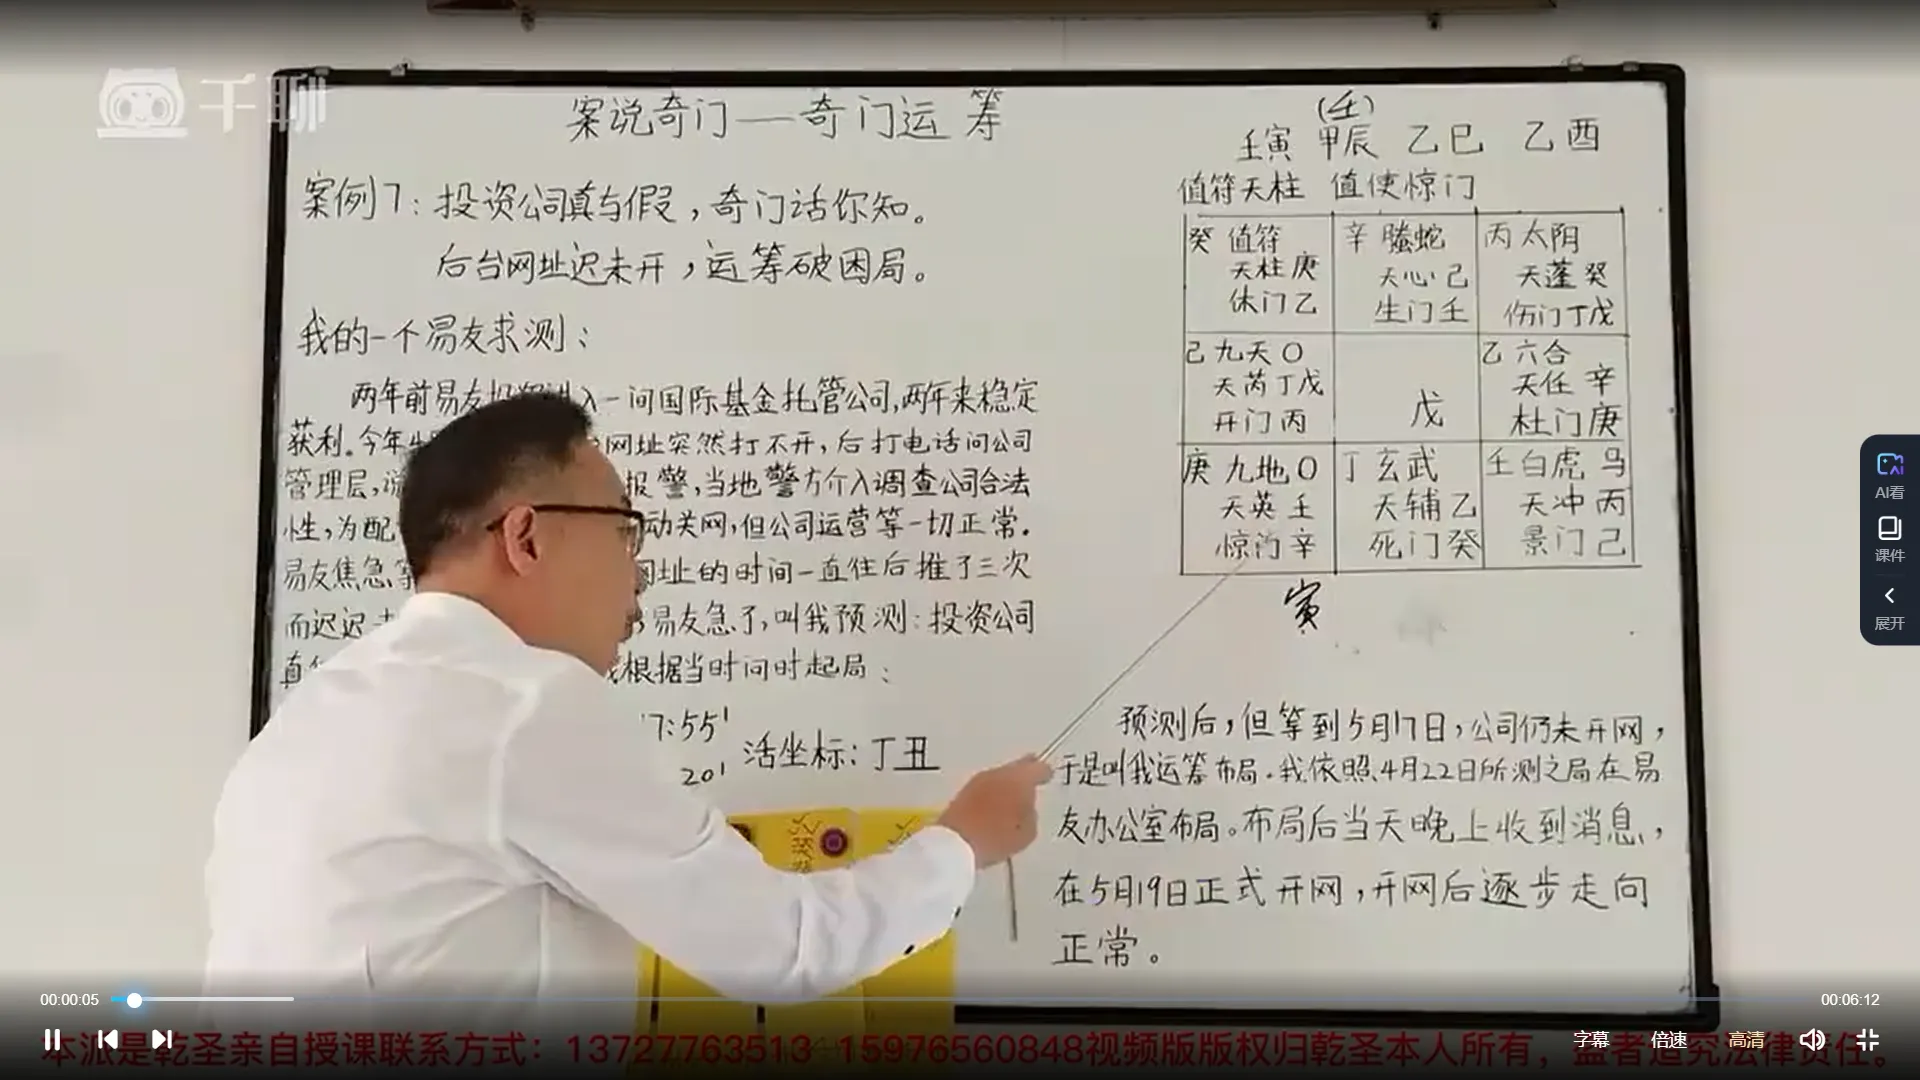 千聊
案说奇门——奇门运筹
案例7：投资公司真与假，奇门话你知。
后台网址迟未开，运筹破困局。
我的一个易友求测：
两年前易友投资进入一间国际基金托管公司，两年来稳定
获利。今年4 网址突然打不开，后打电话问公司
管理层，说 报警，当地警方介入调查公司合法
性，为配 动关网，但公司运营等一切正常。
易友焦急等 网址的时间一直往后推了三次
而迟迟 易友急了，叫我预测：投资公司
真 根据当时问时起局：
7:55' 活坐标：丁丑
20'
(壬)
壬寅 甲辰 乙巳 乙酉
值符天柱 值使惊门
癸 值符 辛 螣蛇 丙 太阴
天柱 庚 天心 己 天蓬 癸
休门 乙 生门 壬 伤门 丁戊
己 九天 O 乙 六合
天芮 丁戊 戊 天任 辛
开门 丙 杜门 庚
庚 九地 O 丁 玄武 壬 白虎 马
天英 壬 天辅 乙 天冲 丙
惊门 辛 死门 癸 景门 己
寅
预测后，但等到5月17日，公司仍未开网，
于是叫我运筹布局。我依照4月22日所测之局在易
友办公室布局。布局后当天晚上收到消息，
在5月19日正式开网，开网后逐步走向
正常。
AI看
课件
展开
00:00:05
00:06:12
字幕 倍速 高清
本派是乾圣亲自授课联系方式：13727763513 15976560848视频版版权归乾圣本人所有，盗者追究法律责任。